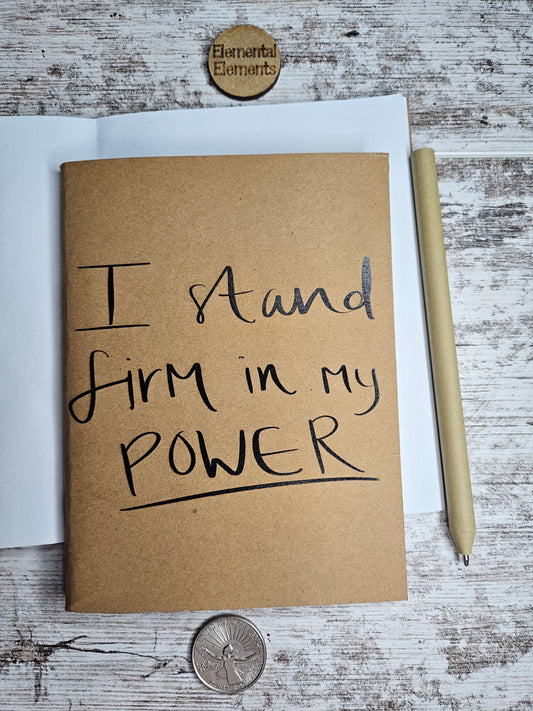 Elemental
Elements
I stand
firm in my
POWER